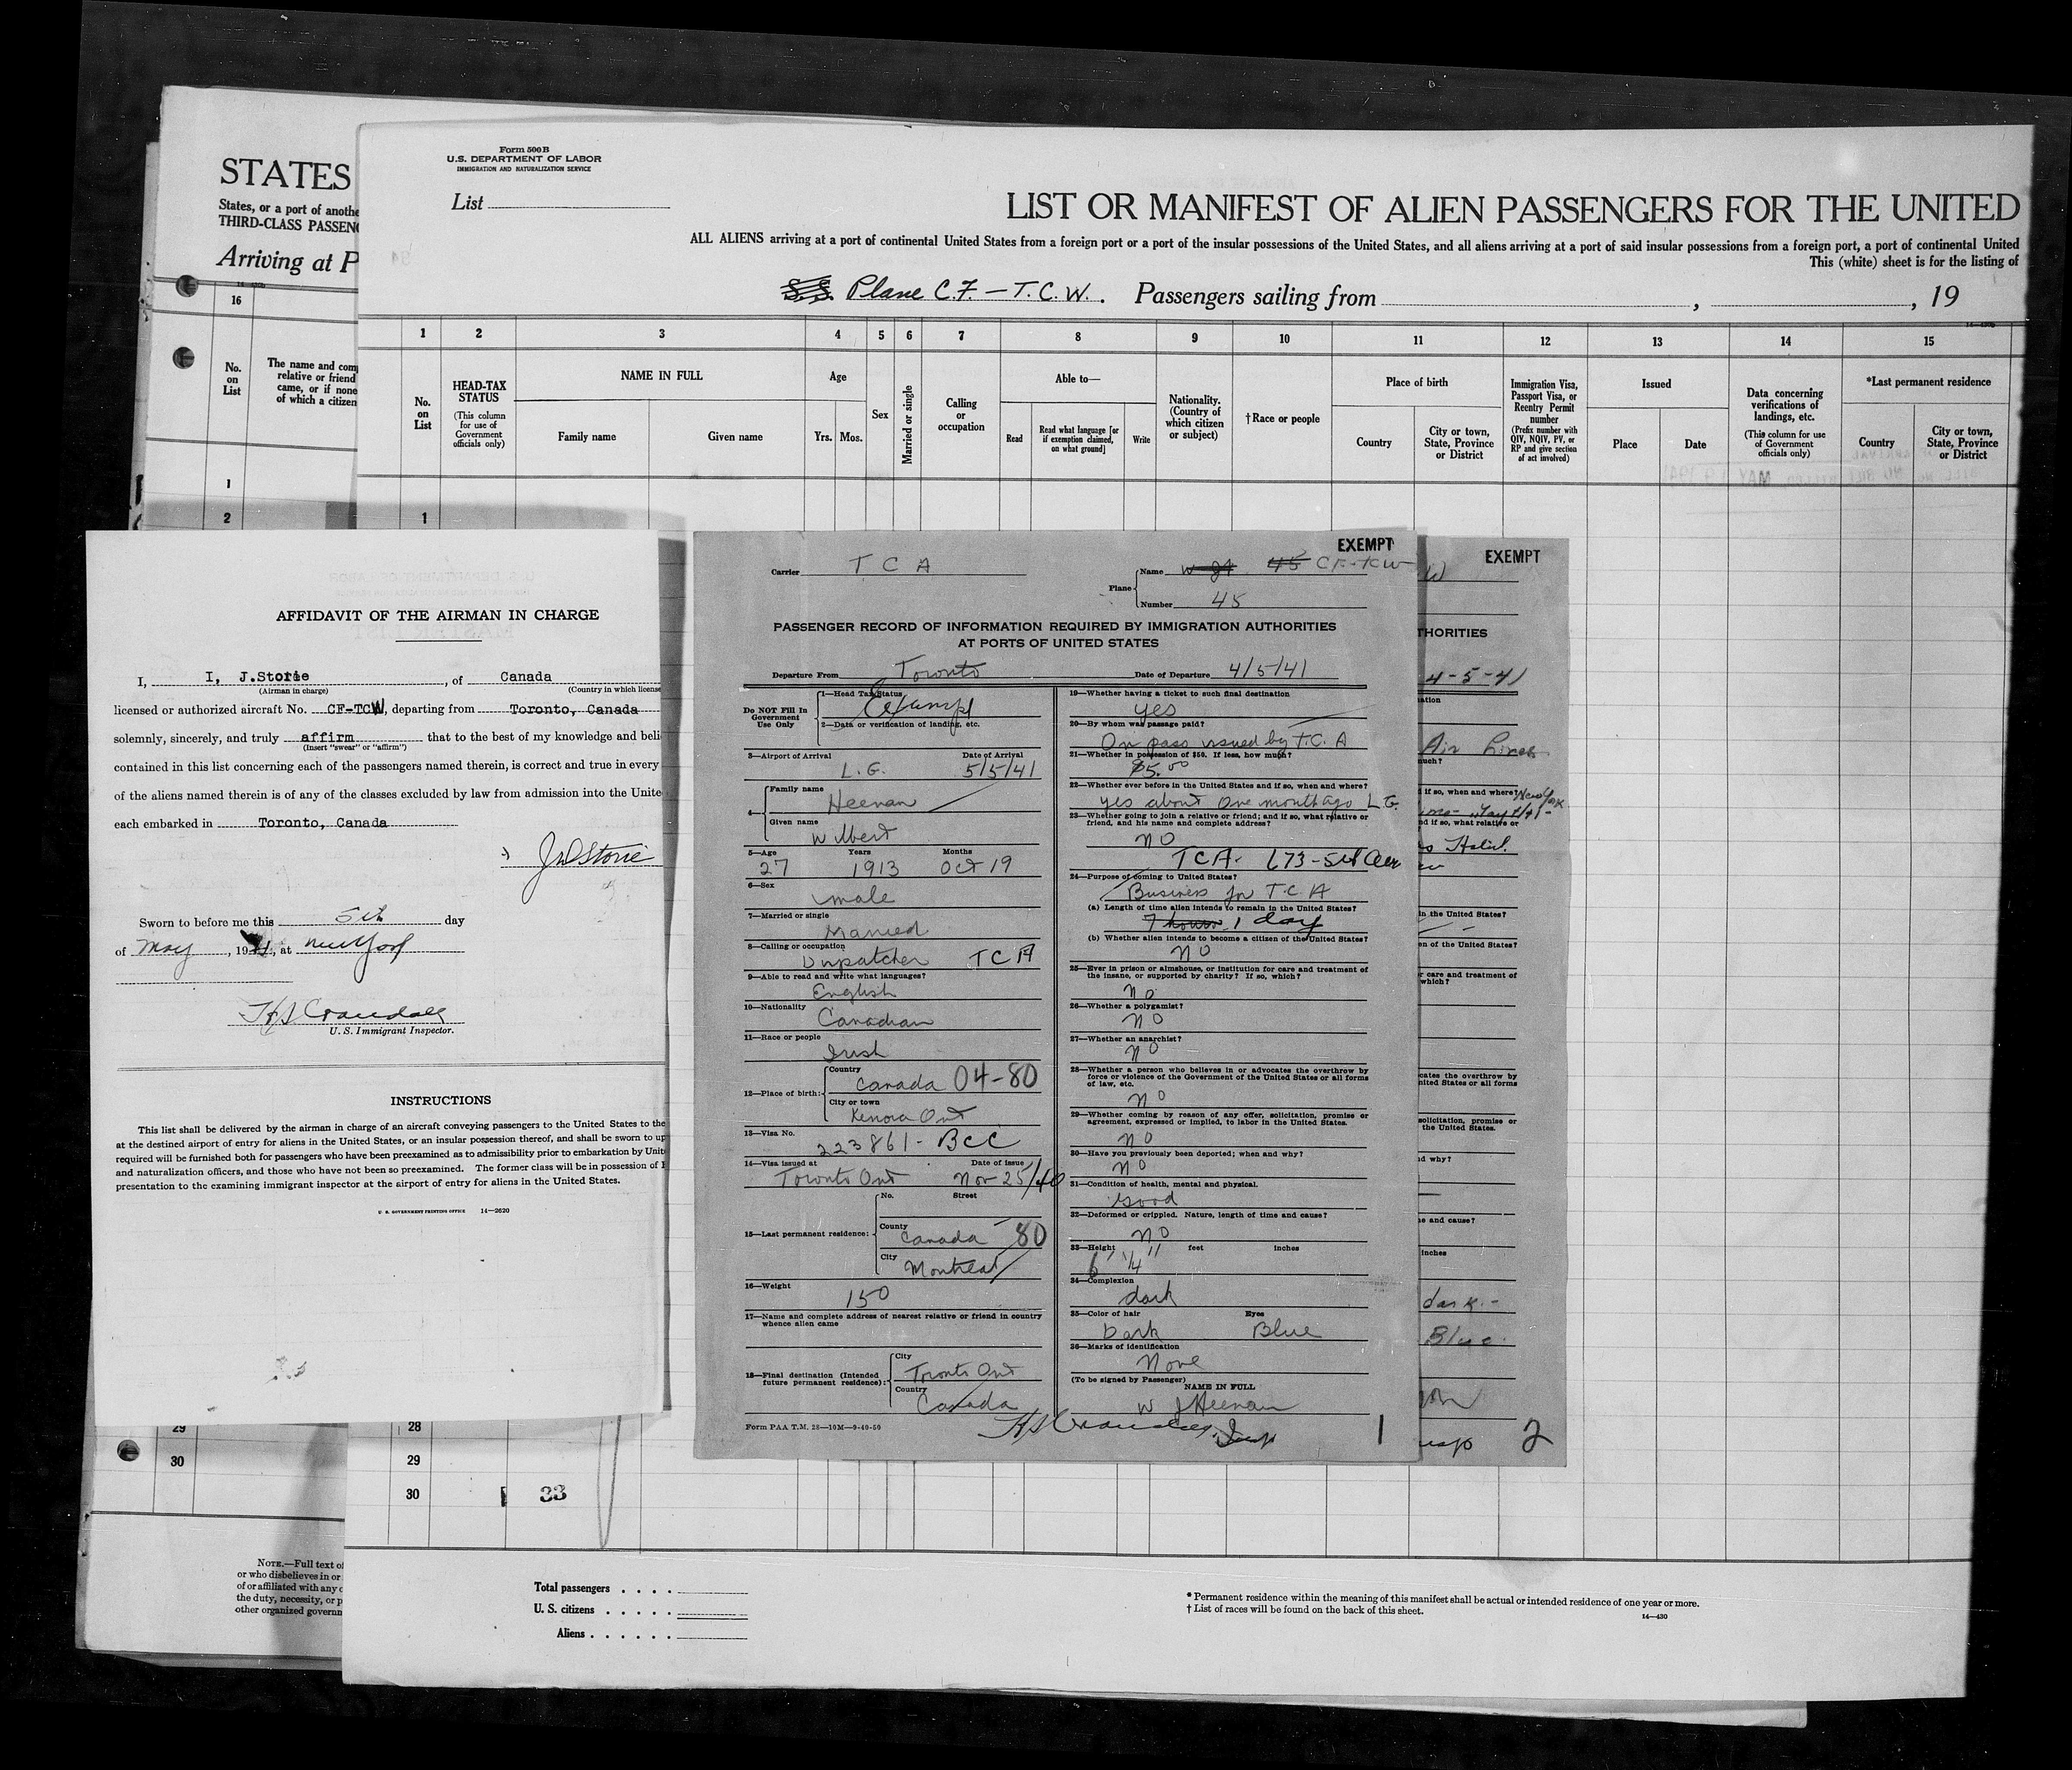 STATES
States, or a port of anothe
THIRD-CLASS PASSENG
Arriving at P
16
No.
on
List
The name and com
relative or friend
came, or if none
of which a citizen
1
2
29
30
NOTE.—Full text of
or who disbelieves in or
of or affiliated with any o
the duty, necessity, or p
other organized governm
Form 500 B
U.S. DEPARTMENT OF LABOR
IMMIGRATION AND NATURALIZATION SERVICE
List
LIST OR MANIFEST OF ALIEN PASSENGERS FOR THE UNITED
ALL ALIENS arriving at a port of continental United States from a foreign port or a port of the insular possessions of the United States, and all aliens arriving at a port of said insular possessions from a foreign port, a port of continental United
This (white) sheet is for the listing of
S.S. Plane C.F. – T.C.W. Passengers sailing from , , 19
1 2 3 4 5 6 7 8 9 10 11 12 13 14 15
No.
on
List
HEAD-TAX
STATUS
(This column
for use of
Government
officials only)
NAME IN FULL
Family name
Given name
Age
Yrs. Mos.
Sex
Married or single
Calling
or
occupation
Able to—
Read
Read what language [or
if exemption claimed,
on what ground]
Write
Nationality.
(Country of
which citizen
or subject)
†Race or people
Place of birth
Country
City or town,
State, Province
or District
Immigration Visa,
Passport Visa, or
Reentry Permit
number
(Prefix number with
QIV, NQIV, PV, or
RP and give section
of act involved)
Issued
Place
Date
Data concerning
verifications of
landings, etc.
(This column for use
of Government
officials only)
*Last permanent residence
Country
City or town,
State, Province
or District
1
28
29
30
33
Total passengers . . . .
U. S. citizens . . . . .
Aliens . . . . . .
* Permanent residence within the meaning of this manifest shall be actual or intended residence of one year or more.
† List of races will be found on the back of this sheet.
14—430
AFFIDAVIT OF THE AIRMAN IN CHARGE
I, I, J.Storie , of Canada
(Airman in charge) (Country in which license
licensed or authorized aircraft No. CF-TCW, departing from Toronto, Canada
solemnly, sincerely, and truly affirm that to the best of my knowledge and beli
(Insert "swear" or "affirm")
contained in this list concerning each of the passengers named therein, is correct and true in every
of the aliens named therein is of any of the classes excluded by law from admission into the Unite
each embarked in Toronto, Canada
Storie
Sworn to before me this 5th day
of May , 1941, at New York
H S Crandall
U. S. Immigrant Inspector.
INSTRUCTIONS
This list shall be delivered by the airman in charge of an aircraft conveying passengers to the United States to the
at the destined airport of entry for aliens in the United States, or an insular possession thereof, and shall be sworn to up
required will be furnished both for passengers who have been preexamined as to admissibility prior to embarkation by Unit
and naturalization officers, and those who have not been so preexamined. The former class will be in possession of
presentation to the examining immigrant inspector at the airport of entry for aliens in the United States.
U. S. GOVERNMENT PRINTING OFFICE 14—2620
EXEMPT
Carrier T C A
Plane
Name 45 CF-TCW
Number 45
PASSENGER RECORD OF INFORMATION REQUIRED BY IMMIGRATION AUTHORITIES
AT PORTS OF UNITED STATES
Departure From Toronto Date of Departure 4/5/41
Do NOT Fill In
Government
Use Only
1—Head Tax Status
Exempt
2—Data or verification of landing, etc.
3—Airport of Arrival Date of Arrival
L.G. 5/5/41
4—
Family name
Heenan
Given name
Wilbert
5—Age Years Months
27 1913 Oct 19
6—Sex
male
7—Married or single
Married
8—Calling or occupation
Dispatcher TCA
9—Able to read and write what languages?
English
10—Nationality
Canadian
11—Race or people
Irish
12—Place of birth:
Country
Canada 04-80
City or town
Kenora Ont
13—Visa No.
223861- BCC
14—Visa issued at Date of issue
Toronto Ont Nov 25/40
15—Last permanent residence:
No. Street
County
Canada 80
City
Montreal
16—Weight
150
17—Name and complete address of nearest relative or friend in country
whence alien came
18—Final destination (Intended
future permanent residence):
City
Toronto Ont
Country
Canada
Form PAA T.M. 28—10M—9-40-50
19—Whether having a ticket to such final destination
yes
20—By whom was passage paid?
On pass issued by T.C.A
21—Whether in possession of $50. If less, how much?
$5.00
22—Whether ever before in the United States and if so, when and where?
yes about one month ago L.G.
23—Whether going to join a relative or friend; and if so, what relative or
friend, and his name and complete address?
NO
TCA- 673-5th Ave
24—Purpose of coming to United States?
Business for TCA
(a) Length of time alien intends to remain in the United States?
7 hours 1 day
(b) Whether alien intends to become a citizen of the United States?
NO
25—Ever in prison or almshouse, or institution for care and treatment of
the insane, or supported by charity? If so, which?
no
26—Whether a polygamist?
NO
27—Whether an anarchist?
NO
28—Whether a person who believes in or advocates the overthrow by
force or violence of the Government of the United States or all forms
of law, etc.
NO
29—Whether coming by reason of any offer, solicitation, promise or
agreement, expressed or implied, to labor in the United States.
NO
30—Have you previously been deported; when and why?
NO
31—Condition of health, mental and physical.
Good
32—Deformed or crippled. Nature, length of time and cause?
NO
33—Height feet inches
6' 1/4"
34—Complexion
dark
35—Color of hair Eyes
Dark Blue
36—Marks of identification
None
(To be signed by Passenger)
NAME IN FULL
W J Heenan
H S Crandall, Insp
1
EXEMPT
W
THORITIES
4-5-41
ation
Air Lines
uch?
if so, when and where? New York
May 1/41-
nd if so, what relative or
Hotel
in the United States?
en of the United States?
r care and treatment of
which?
cates the overthrow by
nited States or all forms
solicitation, promise or
the United States.
d why?
se and cause?
inches
dark-
Blue.
nsp
2